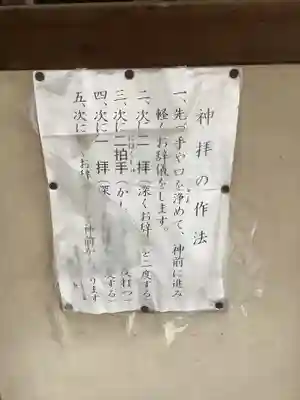 神拝の作法
一、先づ手や口を浄めて、神前に進み
軽くお辞儀をします。
二、次に二拝(深くお辞 を二度する)
三、次に二拍手(かし 打つ)
四、次に一拝(深 する)
五、次に お辞 神前 ります